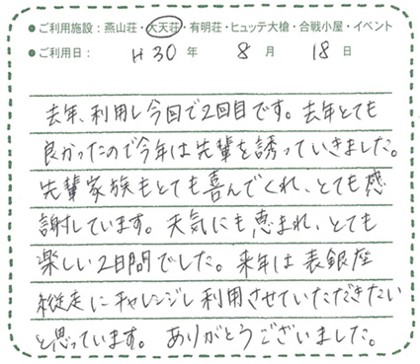 ●ご利用施設：燕山荘・大天荘・有明荘・ヒュッテ大槍・合戦小屋・イベント
●ご利用日： H30年 8月 18日
去年、利用し今回で2回目です。去年とても
良かったので今年は先輩を誘っていきました。
先輩家族もとても喜んでくれ、とても感
謝しています。天気にも恵まれ、とても
楽しい2日間でした。来年は表銀座
縦走にチャレンジし利用させていただきたい
と思っています。ありがとうございました。